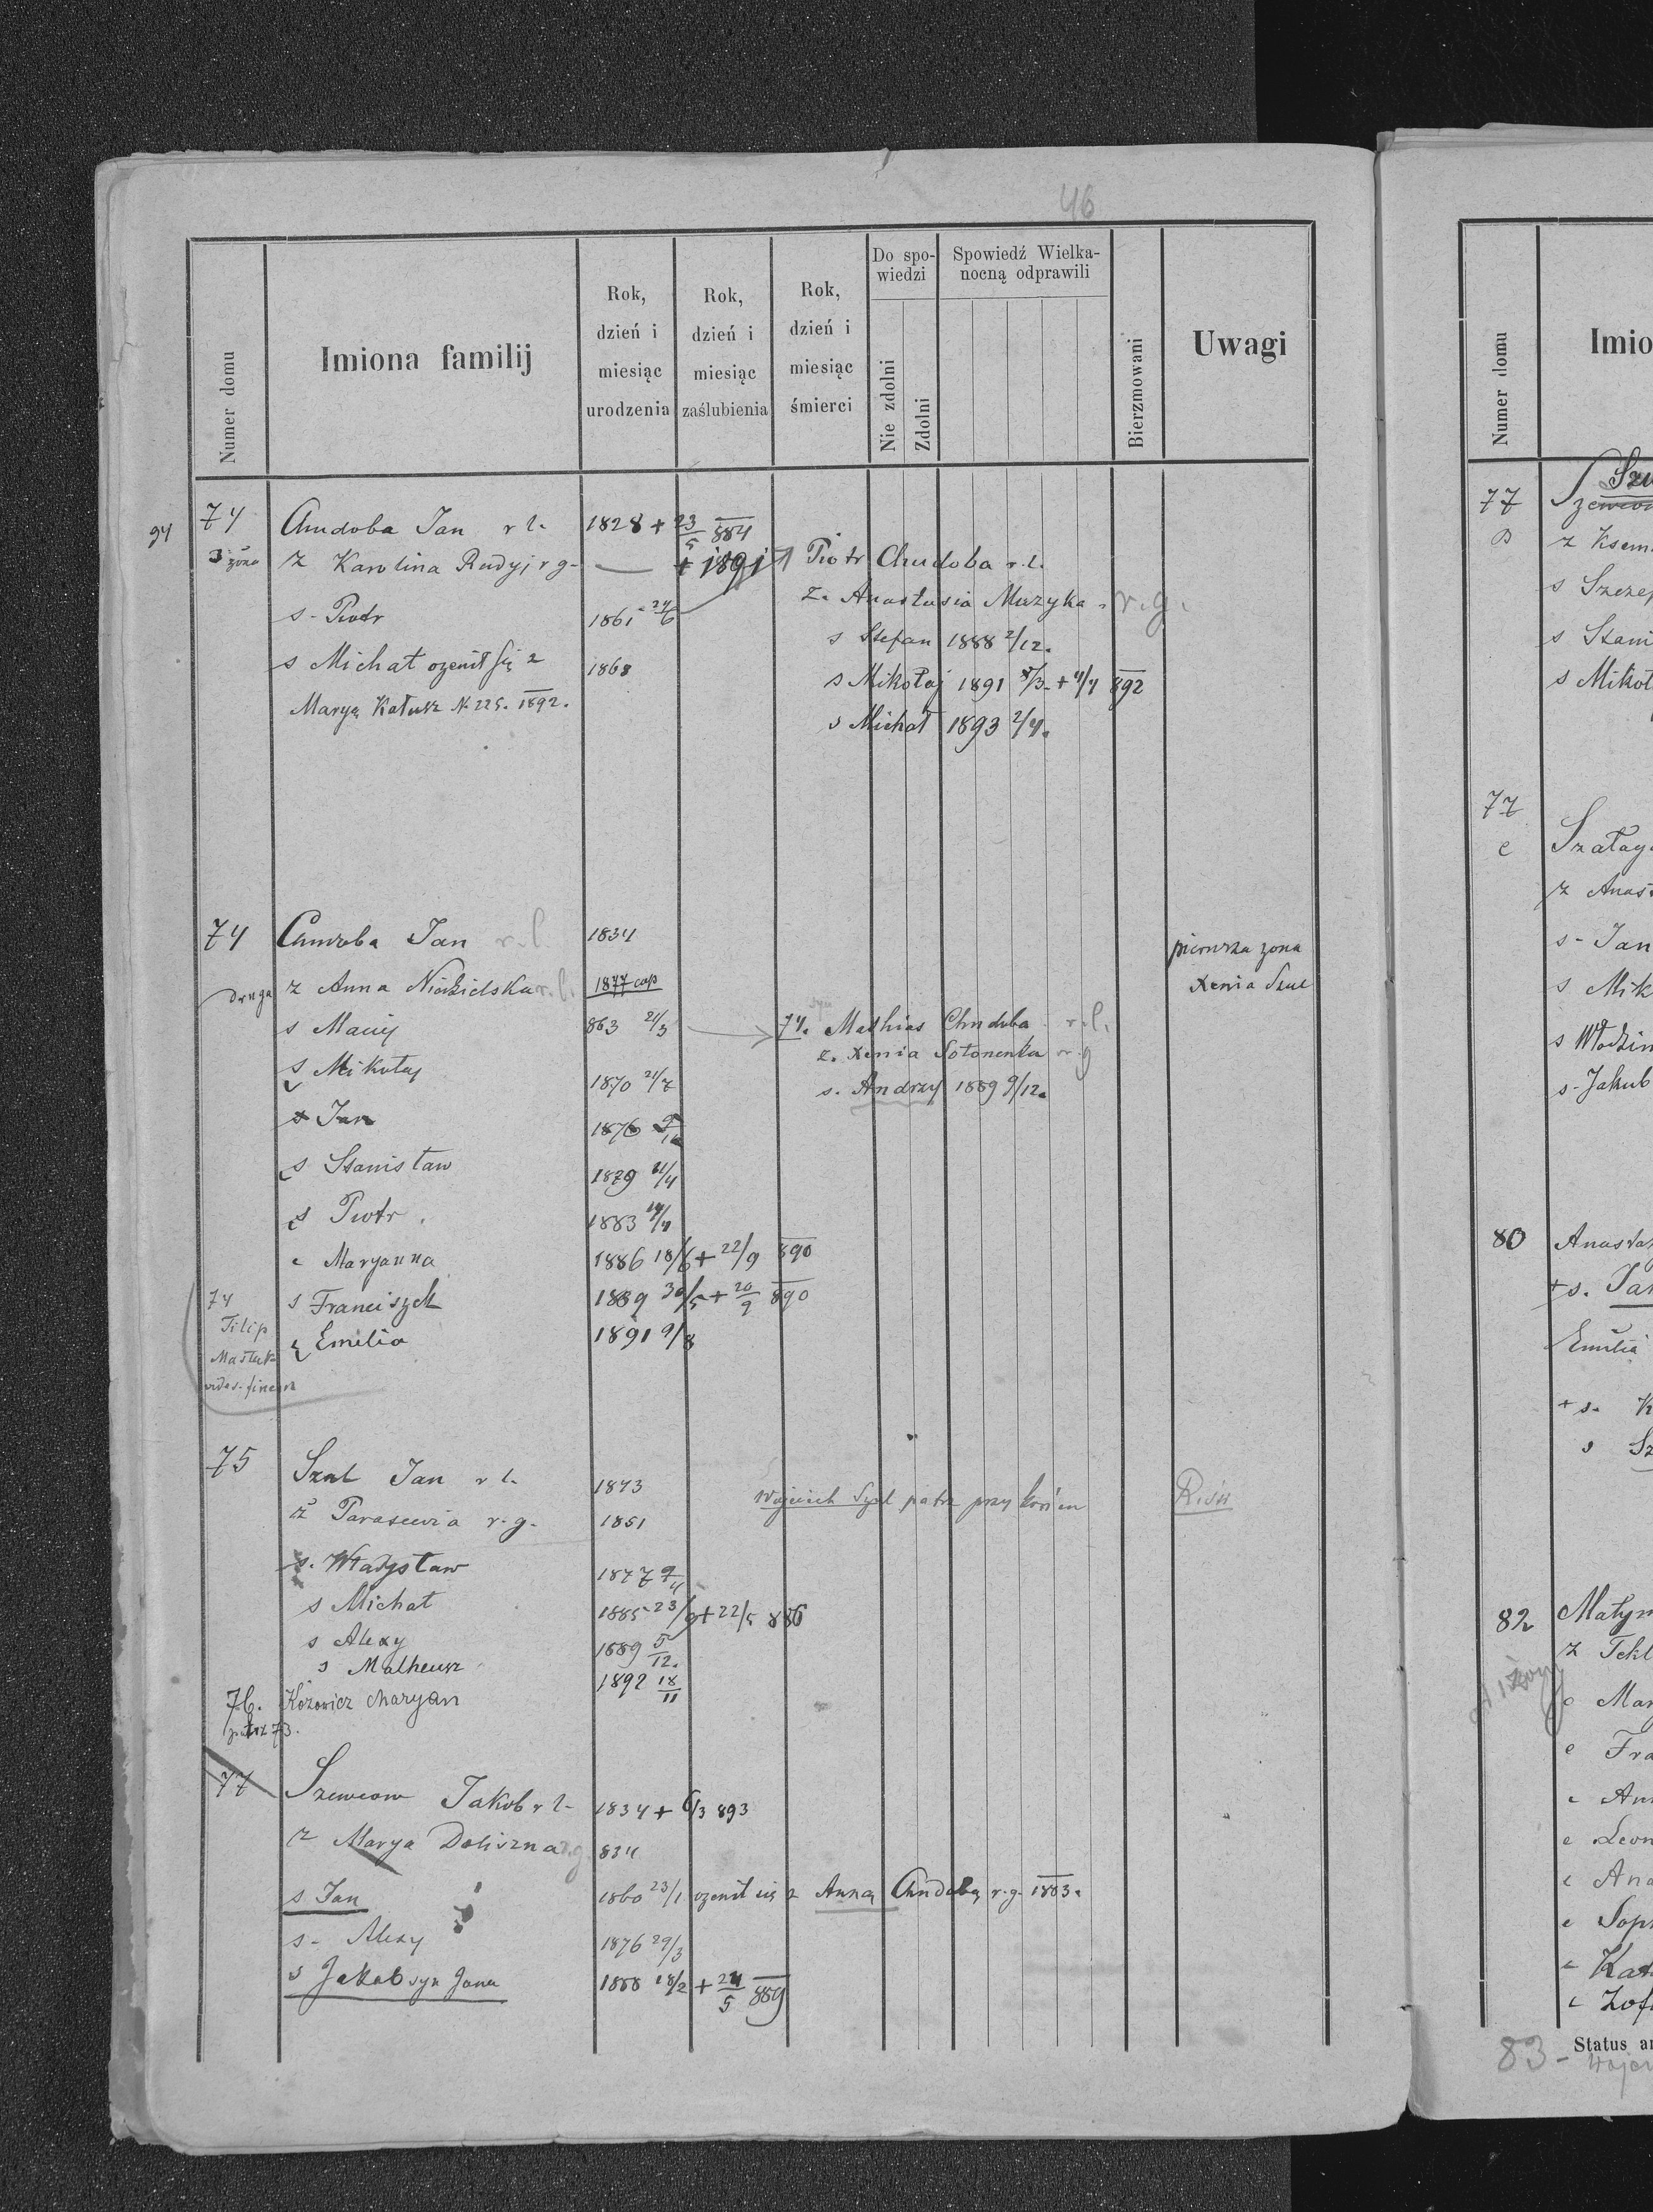 46
Numer domu
Imiona familij
Rok, dzień i miesiąc urodzenia
Rok, dzień i miesiąc zaślubienia
Rok, dzień i miesiąc śmierci
Do spo-wiedzi
Nie zdolni
Zdolni
Spowiedź Wielka-nocną odprawili
Bierzmowani
Uwagi
94 74 Chudoba Jan r l. 1828 + 23/5 884
3 żona z Karolina Rudyj r g - — + 1891
s - Piotr 1861 24/6
s Michał ożenił się z 1868
Maryą Katusz N 225. 1892.
Piotr Chudoba r.l.
z. Anastasia Muzyka. r.g.
s Stefan 1888 2/12.
s Mikołaj 1891 /3 + 4/4 892
s Michał 1893 2/4.
74 Chudoba Jan r.l. 1834
pierwsza żona
Xenia Szul
druga z Anna Niedzielska r.l. 1877 cop
s Maciej 863 21/3
74. syn Mathias Chudoba r.l.
z. Xenia Sotonenka r.g
s. Andrzej 1889 9/12.
s Mikołaj 1870 21/7
s Jan 1876
s Stanisław 1879 21/4
s Piotr. 1883 14/4
c Maryanna 1886 18/6 + 22/9 890
s Franciszek 1889 30/5 + 20/9 890
c Emilia 1891 9/8
74
Filip
vides. finem
75 Szul Jan r l. 1843
Wojciech Szul patrz przy końcu
ż Parascevia r.g. 1851
s. Władysław 1877 9/11
s Michał 1885 23/9 + 22/5 886
s Alexy 1889 5/12.
s Matheusz 1892 18/11
76. Kozowicz Maryan
patrz 73.
77 Szewcow Jakob r l- 1834 + 6/3 893
z Marya Doliszna r.g 834
s Jan 1860 23/1 ożenił się z Anną Chudobą r.g. 1883.
s - Alexy 1876 29/3
s Jakob syn Jana 1888 18/2 + 24/5 889
Numer domu
Imio
77
B
z Ksem
s Szczep
s Stani
s Mikoł
77
c
Szałay
z Anas
s - Jan
s Mik
s Włodzim
s - Jakub
80 Anastaz
+ s. Jan
Emilia
+ s. K
s Sz
82 Matyn
z Tekl
c Mar
c Fra
c Ann
c Leon
c Ana
c Soph
c Kat
c Zof
Status an
83 - Wojc